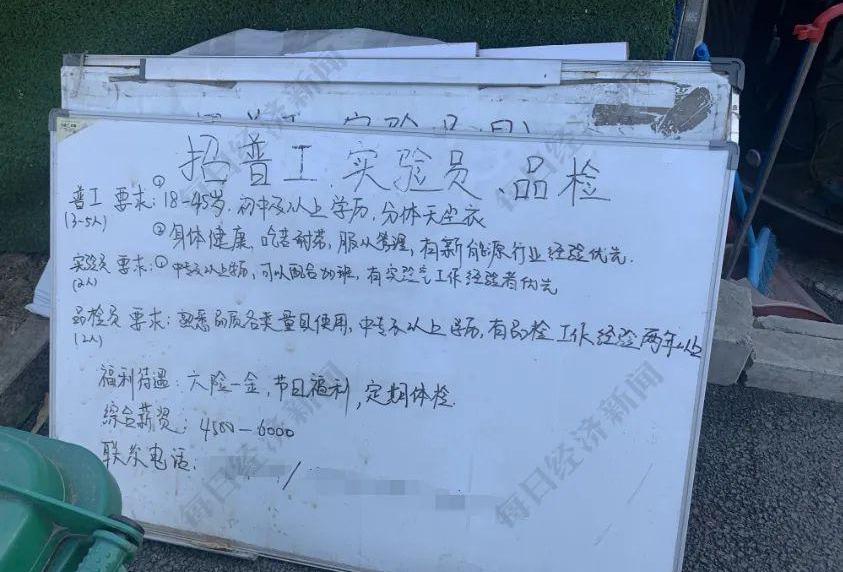 招普工、实验员、品检
普工 要求: ①18-45岁,初中及以上学历,分体无尘衣
(3-5人)
②身体健康,吃苦耐劳,服从管理,有新能源行业经验优先.
实验员 要求: ①中专及以上学历,可以配合加班,有实验室工作经验者优先
(2人)
品检员 要求: 熟悉品质各类量具使用,中专及以上学历,有品检工作经验两年以上
(2人)
福利待遇: 六险一金,节日福利,定期体检.
综合薪资: 4500-6000
联系电话: /
每日经济新闻
每日经济新闻
每日经济新闻
每日经济新闻
每日经济新闻
每日经济新闻